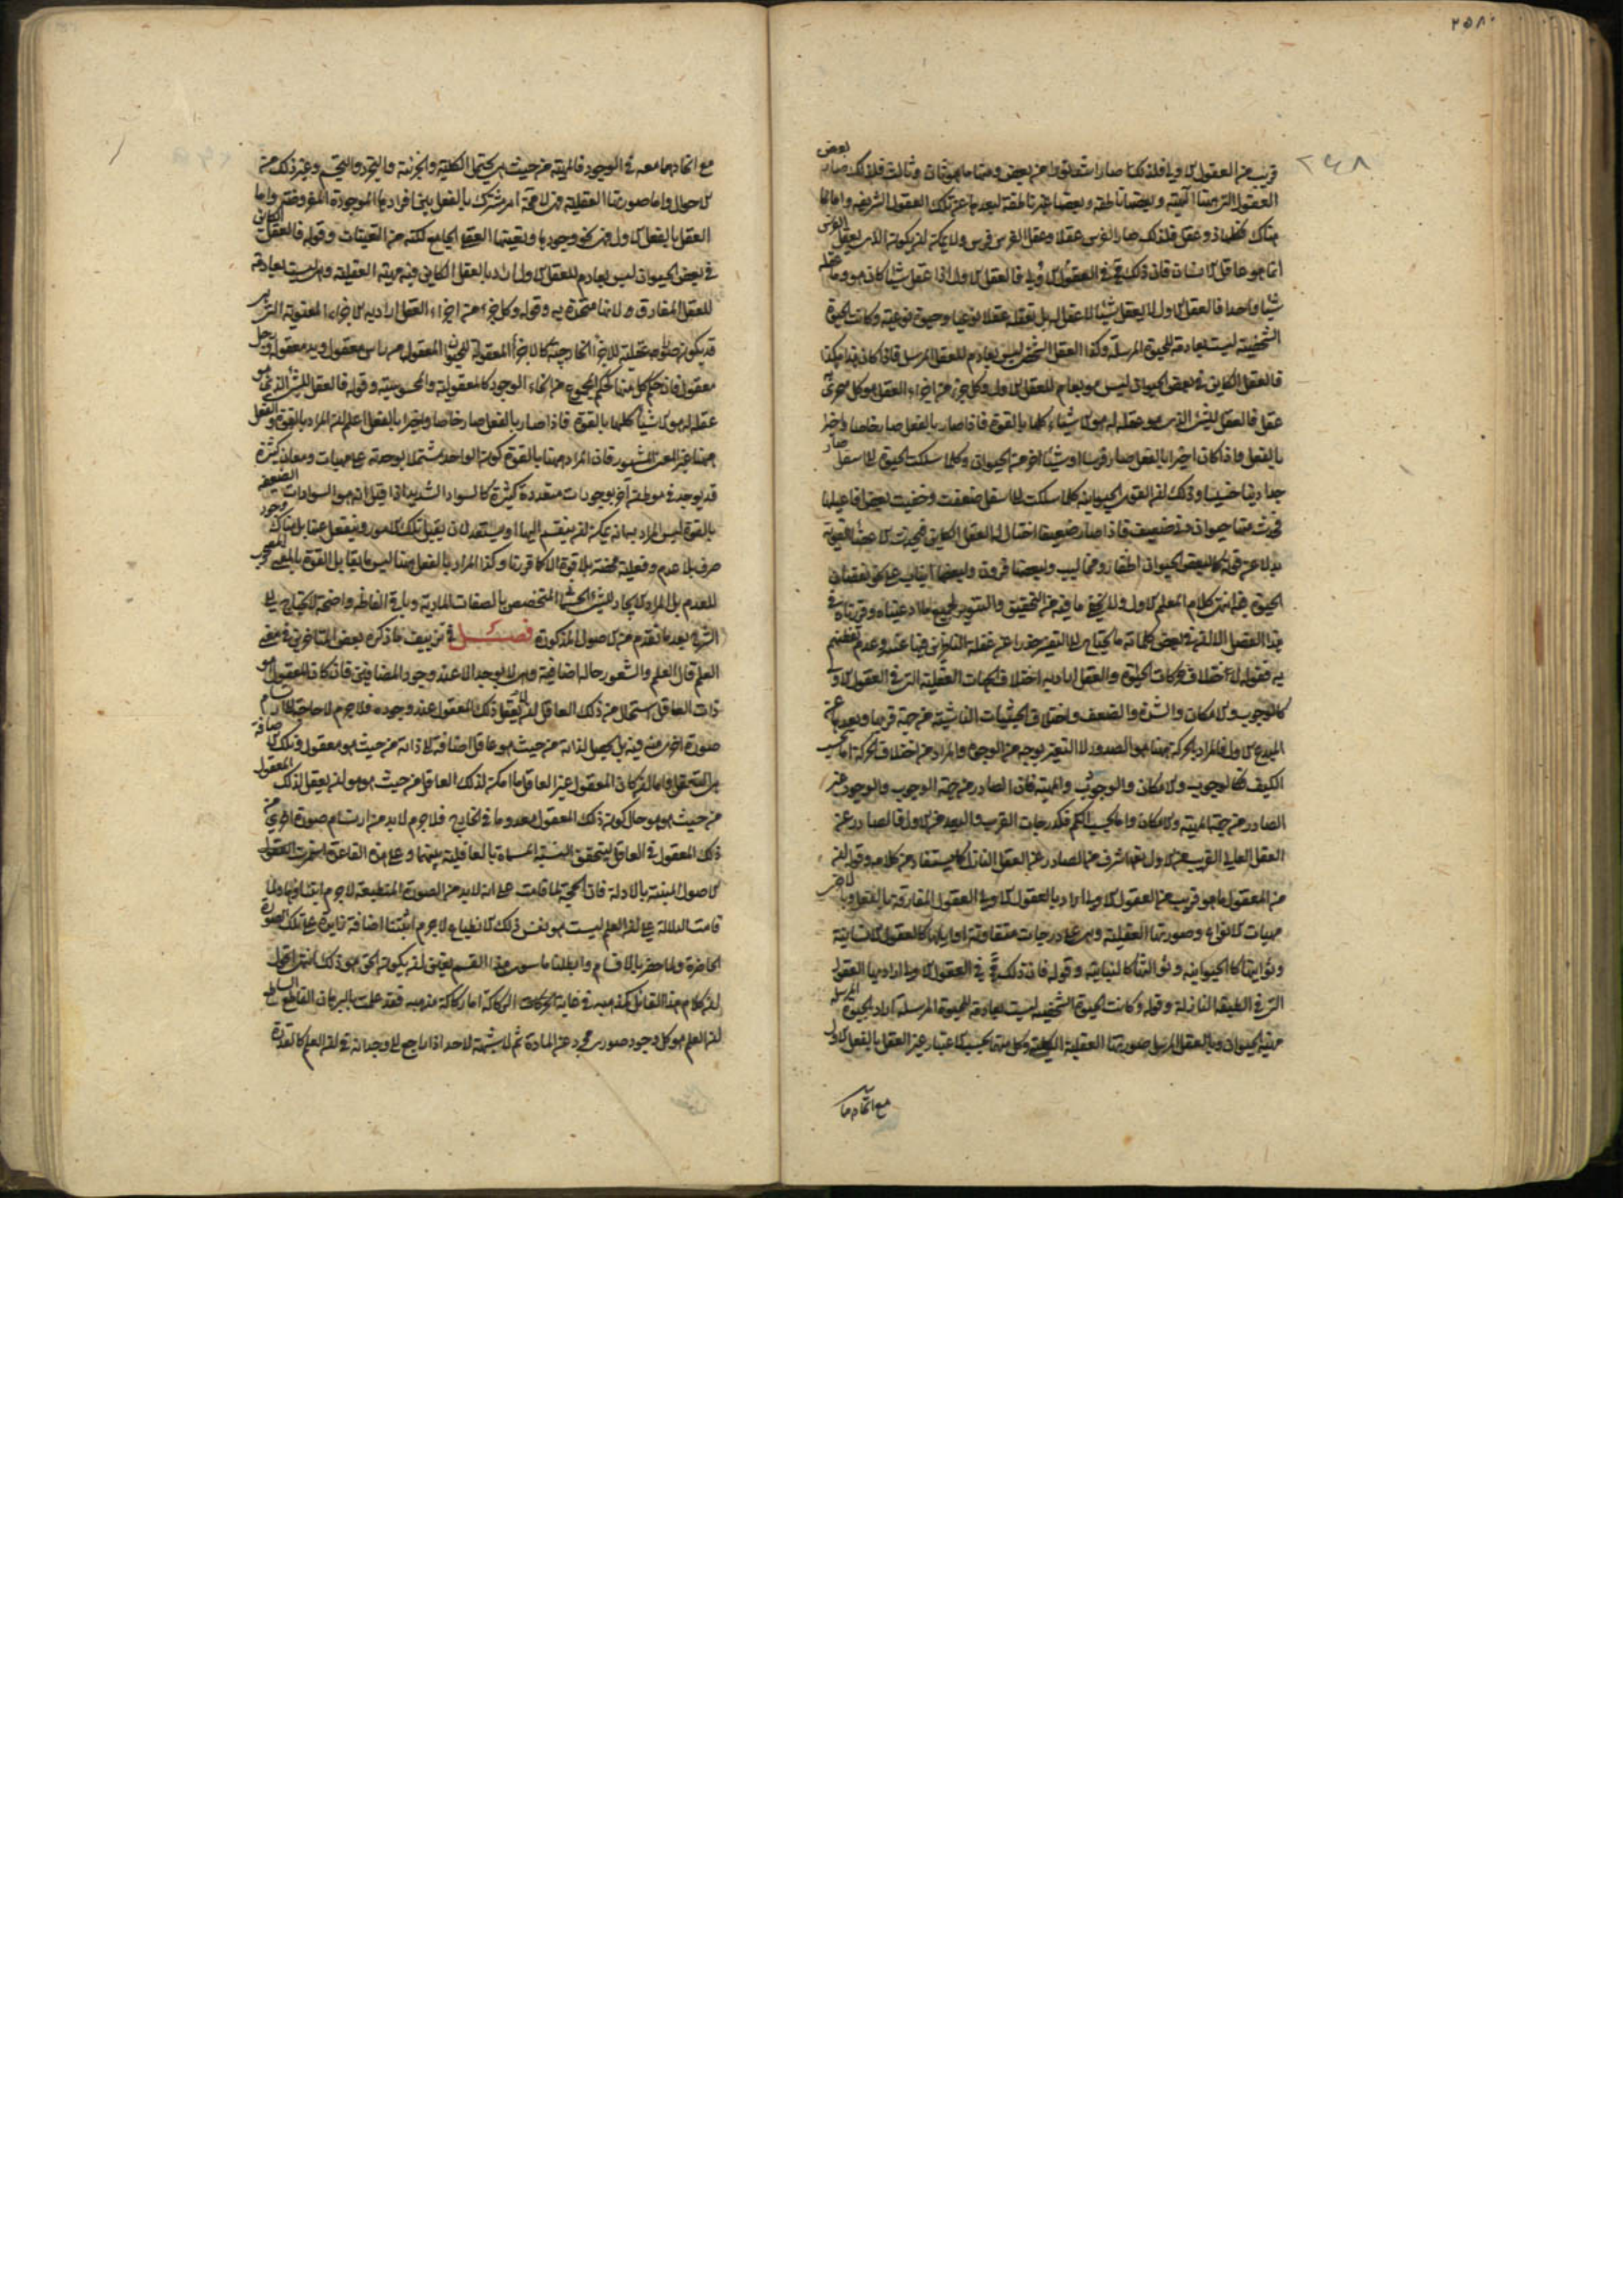 ٢٥٨
٢٤٨
بعض
قريب من العقول الاولى فلذلك صارا شد لقوة من بعض ومنها ما هو ثان وثالث فلذلك صار
العقول التي هنا الهية وبعضها ناطقة وبعضها غير ناطقة لبعدها عن تلك العقول الشريفة واما
هناك فكلها ذو عقل فلذلك صار الفرس عقلا وعقل الفرس فرس ولا يمكن ان يكون الذي يعقل الفرس
انما هو عاقل الانسان فان ذلك في العقول الاولى فالعقل الاول اذا عقل شيئا كان هو وما عقله
شيئا واحدا فالعقل الاول لا يعقل شيئا لا عقل له بل يعقله عقلا نوعيا وحيوة نوعية وكانت الحيوة
الشخصية ليست بعادمة للحيوة المرسلة وكذا العقل الشخصي ليس بعادم للعقل المرسل فاذا كان هذا هكذا
فالعقل الكاين في بعض الحيوان ليس هو بعادم للعقل الاول وكل جزء من اجزاء العقل هو كل يتجزى
عقل فالعقل للشئ الذي هو عقل له هو الاشياء كلها بالقوة فاذا صار بالفعل صار خاصا واخيرا
بالفعل واذا كان اخيرا بالفعل صار فرسا او شيئا اخر من الحيوان وكلما سلكت الحيوة الى اسفل صار
حيا دنيا خسيسا وذلك ان القوى الحيوانية كلما سلكت الى اسفل ضعفت وخفيت بعض افاعيلها
فحدث منها حيوان دني ضعيف فاذا صار ضعيفا احتال له العقل الكاين فيحدث الاعضاء القوية
بدلا عن قوته كما لبعض الحيوان اظفار ومخاليب ولبعضها قرون ولبعضها انياب على نحو نقصان
الحيوة فيه انتهى كلام المعلم الاول ولا يخفى ما فيه من التحقيق والتنوير لجميع ما ادعيناه وقررناه في
هذا الفصل الا ان في بعض كلماته ما يحتاج الى التفسير حذرا عن غفلة الناظرين فيها عنه وعدم تفطنهم
به فقوله لاختلاف حركات الحيوة والعقل اراد به اختلاف الجهات العقلية التي في العقول الاولى
كالوجوب والامكان والشدة والضعف واختلاف الحيثيات الناشية من جهة قربها وبعدها عن
المبدع الاول فالمراد بالحركة هيهنا هو الصدور لا التغير بوجه من الوجوه والمراد من اختلاف الحركة اما بحسب
الكيف فكالوجوب والامكان والوجود والمهية فان الصادر من جهة الوجوب والوجود غير
الصادر من جهة المهية والامكان واما بحسب الكم فكدرجات القرب والبعد من الاول فالصادر عن
العقل العالي القريب من الاول تعالى اشرف من الصادر عن العقل النازل كما يستفاد من كلامه وقوله ان
من العقول ما هو قريب من العقول الاولى اراد بالعقول الاولى العقول المفارقة بالفعل وبالاخر
مهيات الانواع وصورتها العقلية وهي على درجات متفاوتة اوايلها كالعقول الانسانية
وثوانيها كالحيوانية وثوالثها كالنباتية وقوله فان ذلك في العقول الاولى اراد بها العقول
التي في الطبقة النازلة وقوله وكانت الحيوة الشخصية ليست بعادمة للحيوة المرسلة اراد بالحيوة المرسلة
مهية الحيوان وبالعقل المرسل صورتها العقلية الكلية وكل منهما بحسب الاعتبار غير العقل بالفعل الاول
مع اتحادهما
مع اتحادهما معه في الوجود فالمهية من حيث هي يحتمل الكلية والجزئية والتجرد والتجسم وغير ذلك من
الاحوال واما صورتها العقلية فهي لا محة امر مشترك بالفعل بين افرادها الموجودة المفروضة واما
العقل بالفعل الاول فهو نحو وجودها وتعينها العقلي الجامع لكثير من التعينات وقوله فالعقل الكاين
في بعض الحيوان ليس بعادم للعقل الاول اراد بالعقل الكاين فيه مهيته العقلية وهي ليست بعادمة
للعقل المفارق ولانها متحدة به وقوله وكل جزء من اجزاء العقل اراد به الاجزاء المعنوية التي
قد يكون صورة عقلية للاجزاء الخارجية كالاجزاء المعقولة للحيوان المعقول من راس معقول ويد معقول ورجل
معقول فان حكم كل منها كحكم المجموع من انحاء الوجود كالمعقولية والمحسوسية وقوله فالعقل للشئ الذي هو
عقل له هو الاشياء كلها بالقوة فاذا صار بالفعل صار خاصا واخيرا بالفعل اعلم ان المراد بالقوة والفعل
هيهنا غير المعنى المشهور فان المراد هيهنا بالقوة كون الواحد مشتملا بوحدته على مهيات ومعان كثيرة
قد يوجد في موطن اخر بوجودات متعددة كثيرة كالسواد الشديد اذا قيل انه هو السوادات الضعيفة
بالقوة ليس المراد بها انه يمكن ان ينقسم اليها او يستعد لان يقبل تلك الامور وينفعل عنها بل هناك وجود
صرف بلا عدم وفعلية محضة بلا قوة الا كما قررنا وكذا المراد بالفعل هيهنا ليس ما يقابل القوة بالمعنى المصحوب
للعدم بل المراد الايجاد للشئ الجسماني المتخصص بالصفات المادية وباقي الفاظه واضحة لا يحتاج الى
الشرح بعد ما تقدم من الاصول المذكورة فصل في تزييف ما ذكره بعض المتاخرين في معنى
العلم قال العلم والشعور حالة اضافية وهي لا توجد الا عند وجود المضافين فان كان المعقول هو
ذات العاقل استحال من ذلك العاقل ان لا يعقل ذلك المعقول عند وجوده فلا جرم لا حاجة الى ارتسام
صورة اخرى منه فيه بل يحصل لذاته من حيث هو عاقل اضافة الى ذاته من حيث هو معقول وتلك الاضافة
هي التعقل واما ان كان المعقول غير العاقل ما امكن لذلك العاقل من حيث هو هو ان يعقل ذلك المعقول
من حيث هو هو حال كون ذلك المعقول معدوما في الخارج فلا جرم لا بد من ارتسام صورة اخرى من
ذلك المعقول في العاقل ليتحقق النسبة المسماة بالعاقلية بينهما وعلى هذه القاعدة استمرت
الاصول المبنية بالادلة فان الحجة لما قامت على انه لا بد من الصورة المنطبعة لا جرم اثبتناها ولما
قامت الدلالة على ان العلم ليست هو نفس ذلك الانطباع لا جرم اثبتنا اضافة زايدة على تلك الصورة
الحاضرة ولما حصر بالاقسام وابطلنا ما سوى هذا القسم تعين ان يكون الحق هو ذلك انتهى اقول
ان كلام هذا القائل كمذهبه في غاية الركاكة اما ركاكة مذهبه فقد علمت بالبرهان القاطع الساطع
ان العلم هو كل وجود صوري مجرد عن المادة ثم لا شبهة لاحد اذا راجع الى وجدانه في ان العلم كالقدرة